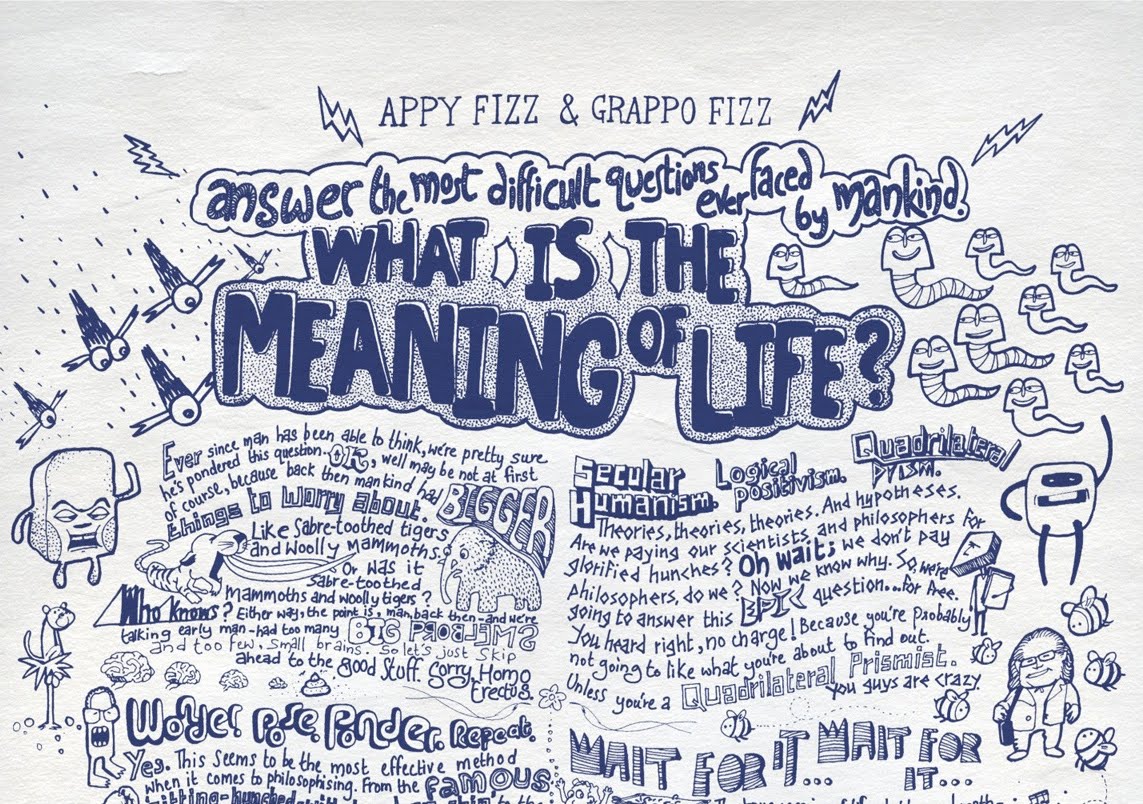 APPY FIZZ & GRAPPO FIZZ
answer the most difficult questions ever faced by mankind.
WHAT IS THE
MEANING OF LIFE?
Ever since man has been able to think, we're pretty sure
he's pondered this question. OK, well maybe not at first
of course, because back then mankind had BIGGER
things to worry about.
Like Sabre-toothed tigers
and Woolly mammoths.
Or was it
Sabre-toothed
mammoths and woolly tigers?
Who knows? Either way, the point is, man back then-and we're
talking early man-had too many BIG PROBLEMS
and too few, small brains. So let's just skip
ahead to the good stuff. Sorry, Homo
Erectus.
Wonder. Pose. Ponder. Repeat.
Yes. This seems to be the most effective method
when it comes to philosophising. From the famous
to the
Secular
Humanism.
Logical
positivism.
Quadrilateral
Prism.
Theories, theories, theories. And hypotheses.
Are we paying our scientists and philosophers for
glorified hunches? Oh wait; we don't pay
philosophers, do we? Now we know why. So, we're
going to answer this EPIC question...for free.
You heard right, no charge! Because you're probably
not going to like what you're about to find out.
Unless you're a Quadrilateral Prismist.
You guys are crazy.
WAIT FOR IT WAIT FOR
IT...